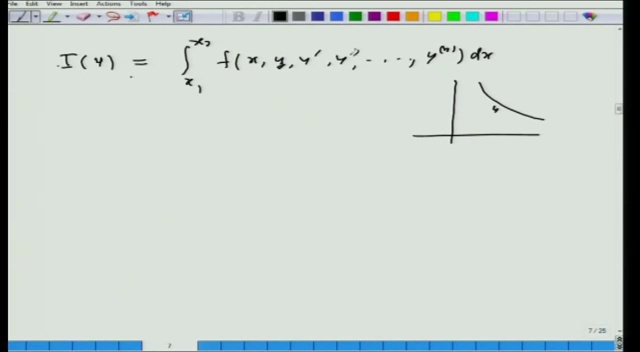 File Edit View Insert Actions Tools Help
I(y) = ∫_{x₁}^{x₂} f(x, y, y', y'', ..., y^{(n)}) dx
y
7 / 25
7